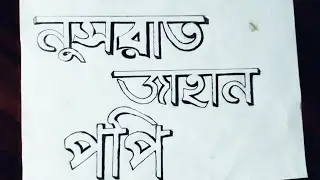 নুসরাত
জাহান
পপি